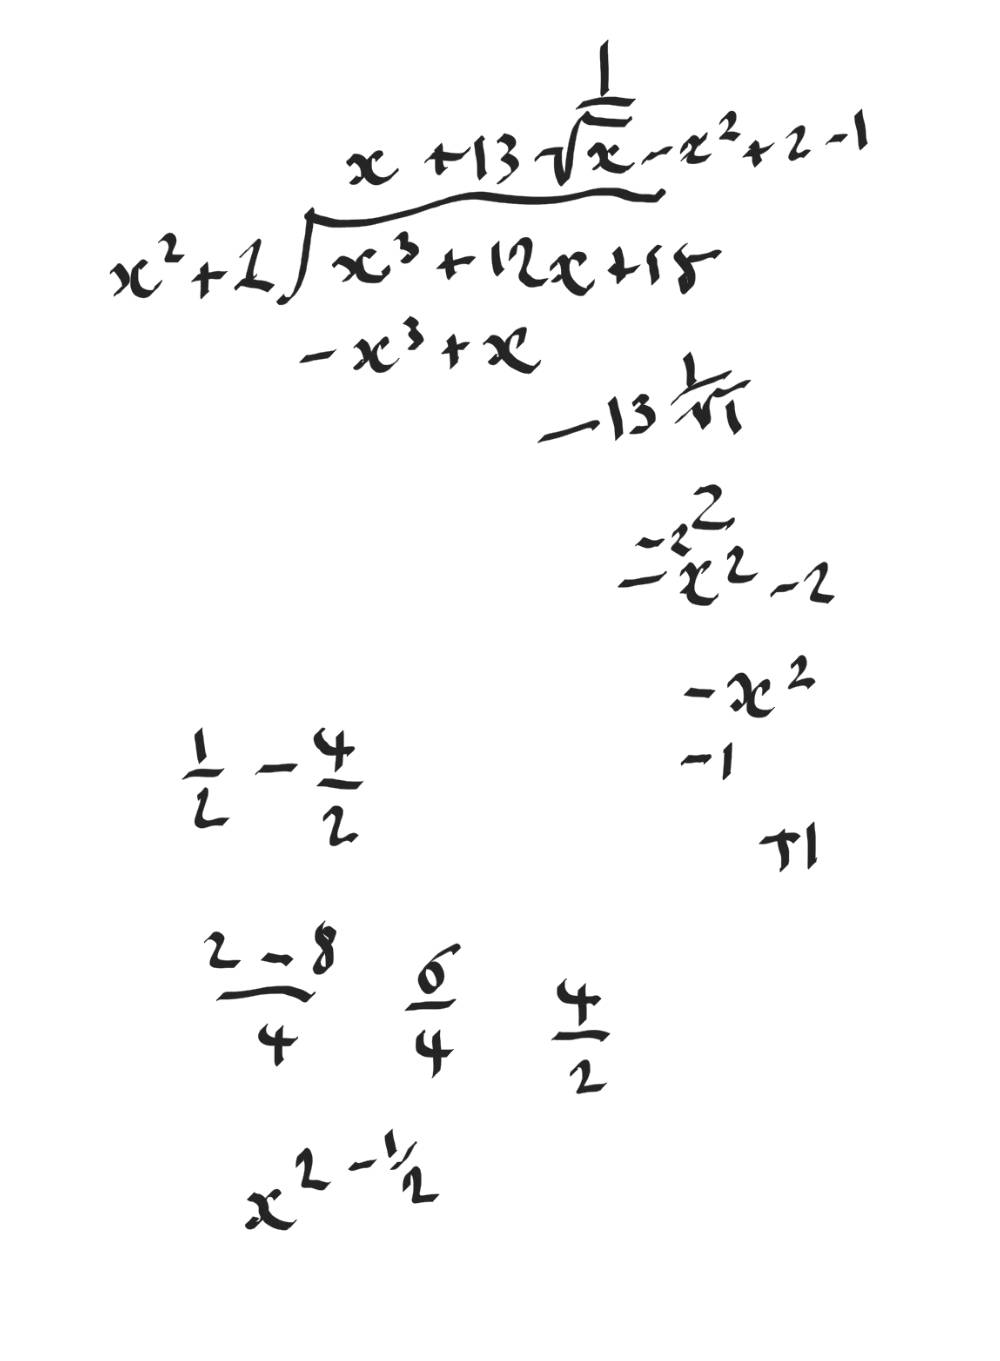 x + 13 √x̅ 1/ - x² + 2 - 1
x² + 1 ) x³ + 12x + 15
- x³ + x
- 13 1/√1
2
- 2
- x² - 2
- x²
1/2 - 4/2
- 1
+1
2 - 8 / 4 6/4 4/2
x^2 - 1/2